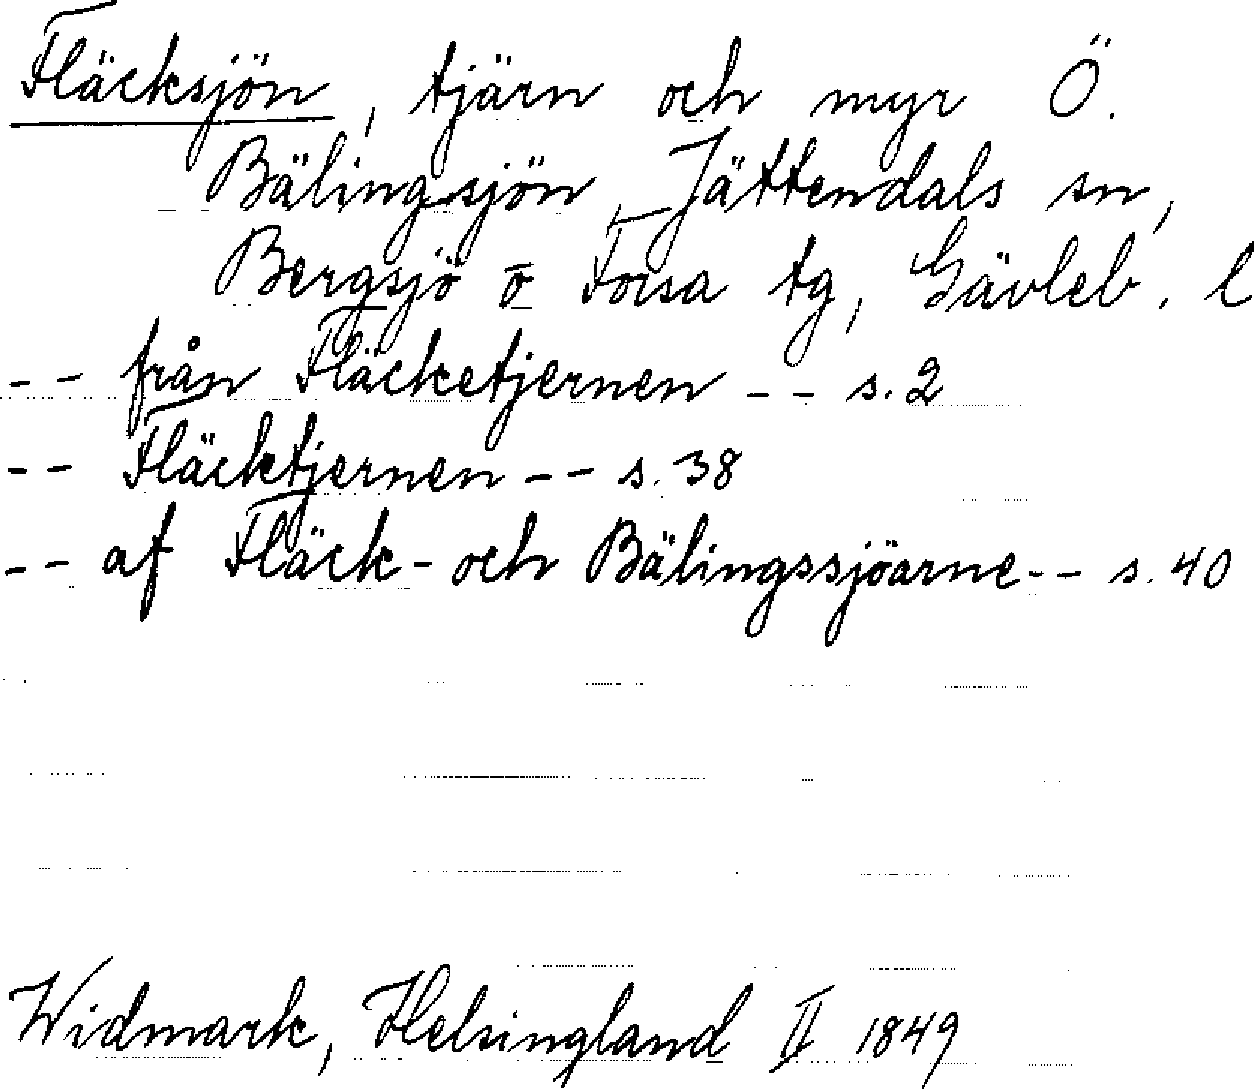 Fläcksjön, tjärn och myr Ö.
Bälingsjön, Jättendals sn,
Bergsjö o Forsa tg, Gävleb. l
-- från Fläcketjernen -- s. 2
-- Fläcktjernen -- s. 38
-- af Fläck- och Bälingssjöarne -- s. 40
Widmark, Helsingland II 1849